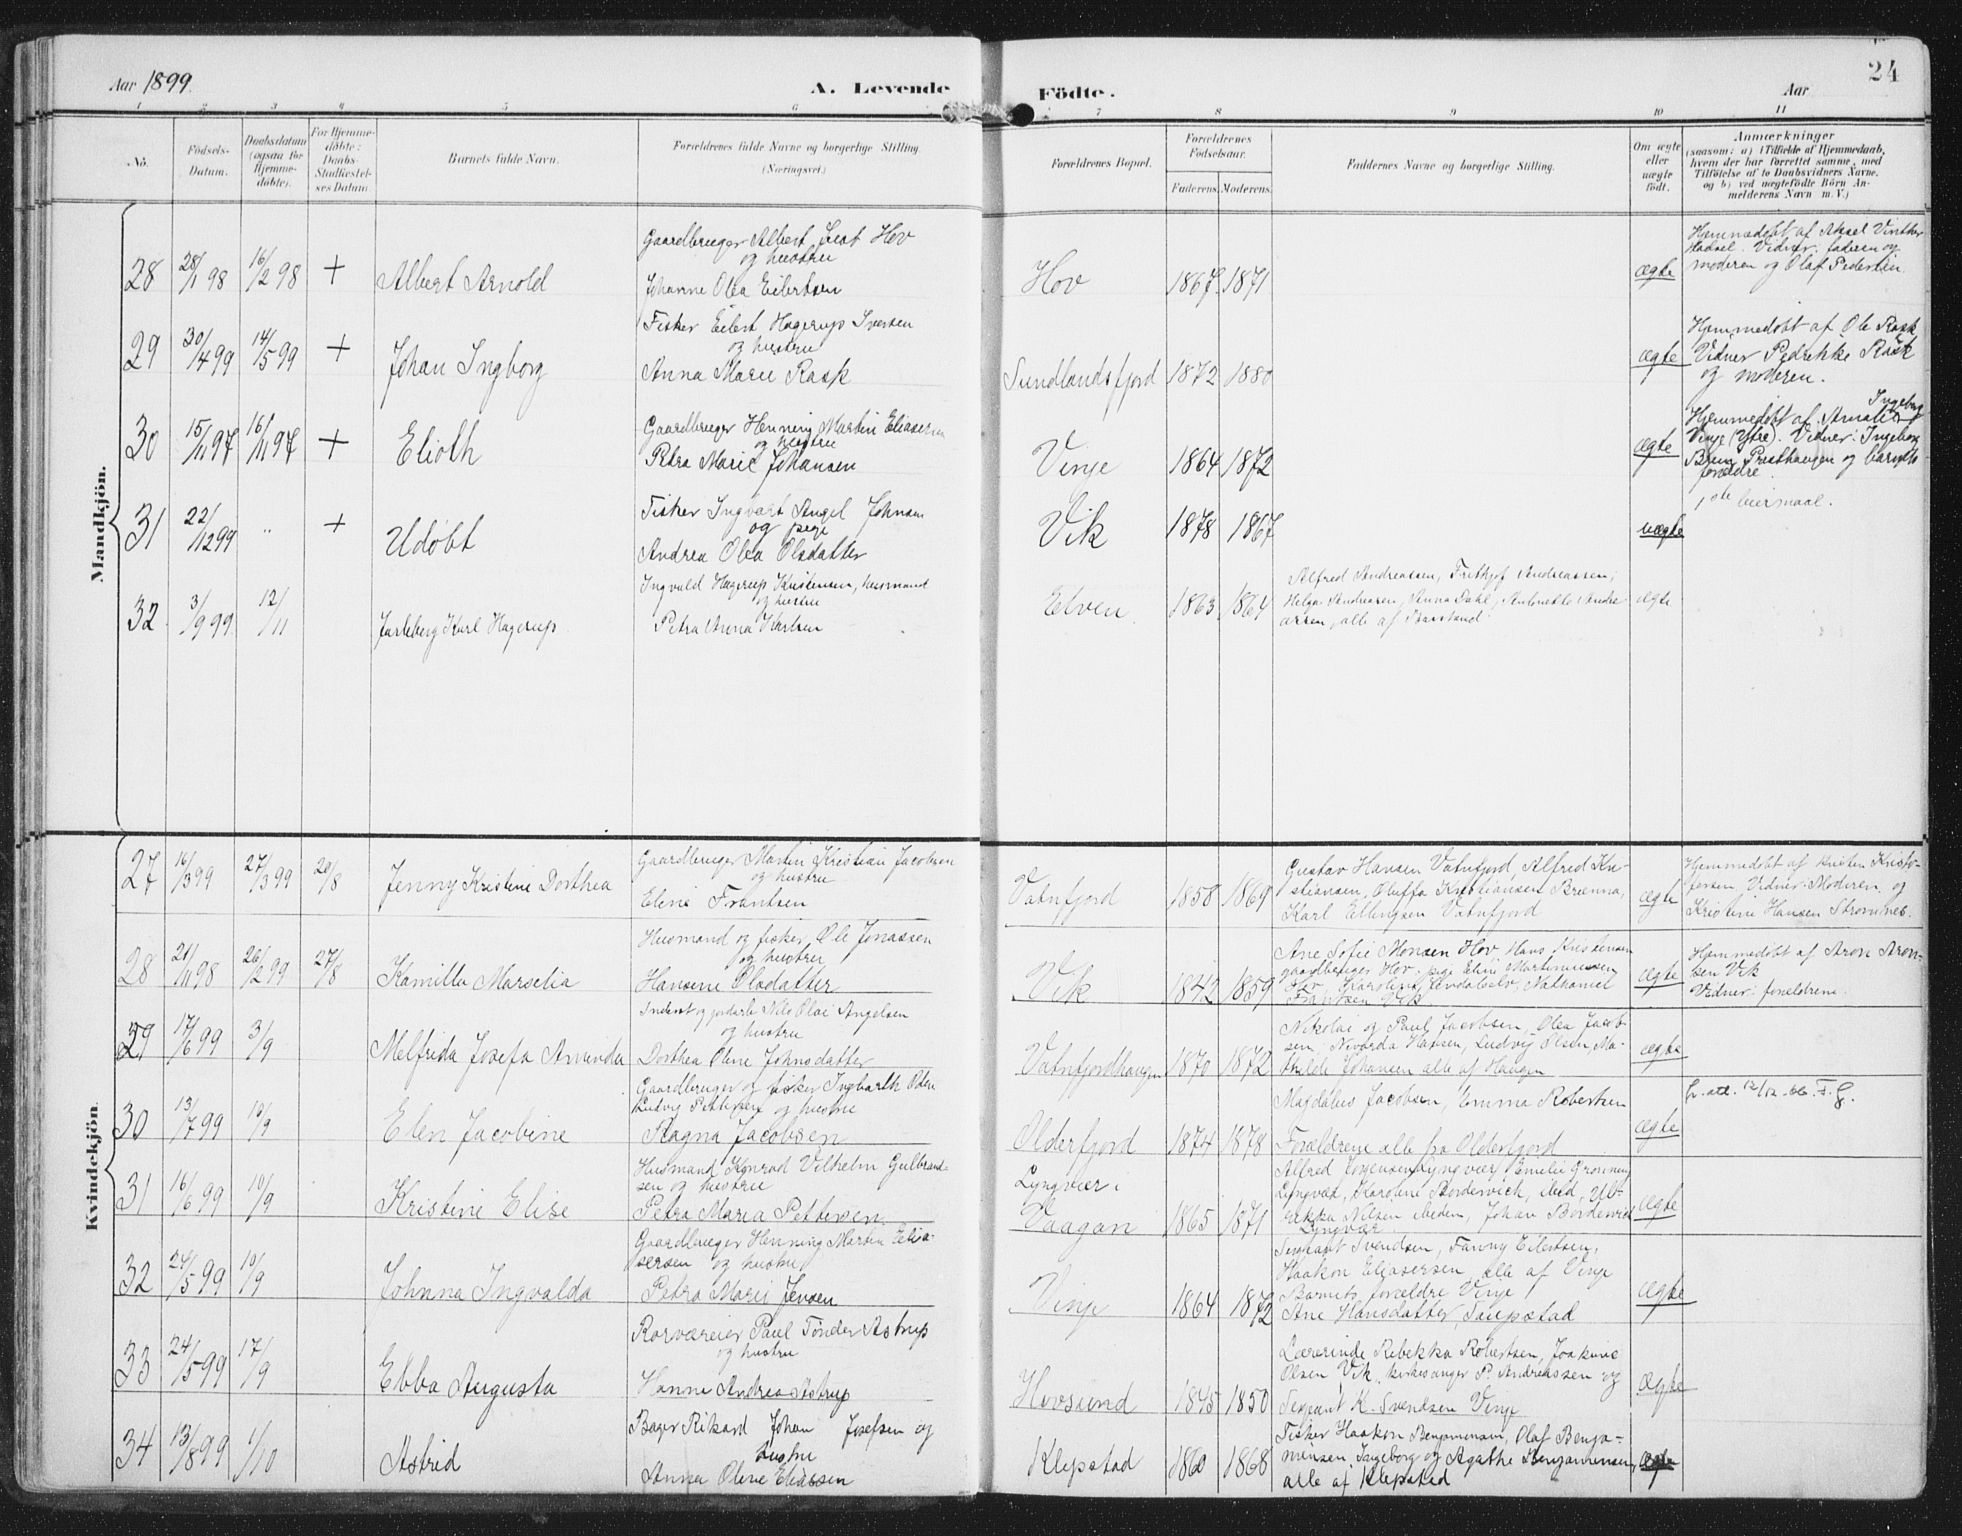 Aar 1899.
A. Levende
Födte.
Aar
24
1 2 3 4 5 6 7 8 9 10 11
No.
Födsels-
Datum.
Daabsdatum
(ogsaa for
Hjemme-
döbte).
For Hjemme-
döbte:
Daabs-
Stadfæstel-
ses Datum.
Barnets fulde Navn.
Forældrenes fulde Navne og borgerlige Stilling.
(Næringsvei.)
Forældrenes Bopæl.
Forældrenes
Födselsaar.
Faderens. Moderens.
Faddernes Navne og borgerlige Stilling.
Om ægte
eller
uægte
födt.
Anmærkninger
(saasom: a) i Tilfælde af Hjemmedaab,
hvem der har forrettet samme, med
Tilföielse af to Daabsvidners Navne.
og b) ved uægtefödte Börn An-
melderens Navn m. V.)
Mandkjön.
28 28/1 98 16/2 98 + Albert Arnold
Gaardbruger Albert Hov
og hustru
Johanne Olea Eilertsen
Hov 1867 1871 ægte
Hjemmedøbt af Aksel Vinther
Hadsel. Vidner: faderen og
moderen og Olaf Pedersen.
29 30/4 99 14/5 99 + Johan Ingborg
Fisker Eilert Hagerup Iversen
og hustru
Anna Marie Rask
Sundlandsfjord 1872 1880 ægte
Hjemmedøbt af Ole Rask
Vidner Pedrikke Rask
og moderen.
30 15/11 97 16/11 97 + Elioth
Gaardbruger Henning Martin Eliasersen
og hustru
Petra Marie Johansen
Vinje 1864 1872 ægte
Ingeborg
Hjemmedøbt af
Vinje (Ytre). Vidner: Ingeborg
Brun Presthaugen og barnets
forældre.
31 22/12 99 " + Udöbt
Fisker Ingvart Angel Johnsen
og pige
Andrea Olea Olsdatter
Vik 1878 1867 uægte
1ste leiermaal.
32 3/9 99 12/11 Jarleberg Karl Hagerup
Ingvald Hagerup Kristensen, husmand
og hustru
Petra Anna Karlsen
Elven 1863 1864
Alfred Andreassen, Frithjof Andreassen,
Helga Andreasen, Anna Dahl, Antonette Andre
assen, alle af
ægte
Kvindekjön.
27 16/3 99 27/3 99 20/8 Jenny Kristine Dorthea
Gaardbruger Martin Kristian Jacobsen
og hustru
Eline Frantsen
Vatnfjord 1858 1869
Gustav Hansen Vatnfjord, Alfred Kri-
stiansen, Oluffa Kristiansen Brenna,
Karl Ellingsen Vatnfjord
ægte
Hjemmedøbt af Kristen Kristo-
fersen, Vidner: Moderen, og
Kristine Hansen Strømnes.
28 21/11 98 26/2 99 27/8 Kamilla Marselia
Husmand og fisker Ole Jonassen
og hustru
Hansine Olsdatter
Vik 1842 1859
Ane Sofie Monsen Hov, Hans Kristensen
gaardbruger Hov, pige Eline Martinussen
Hov, Karoline, Nathaniel
Frantsen Vik
ægte
Hjemmedøbt af Aron Aron-
sen Vik
Vidner: forældrene.
29 17/6 99 3/9 Melfrida Josefa Aminda
Inderst og jordarb Nils Olai Angelsen
og hustru
Dorthea Oline Johnsdatter
Vatnfjordhaugen 1870 1872
Nikolai og Paul Jacobsen, Olea Jacob-
sen, Nevarda Hansen, Ludvig Olsen, Ma-
thilde Johansen alle af Haugen
ægte
30 13/7 99 10/9 Elen Jacobine
Gaardbruger og fisker Ingbarth Oden
Ludvig Pettersen og hustru
Ragna Jacobsen
Olderfjord 1874 1878
Magdalus Jacobsen, Emma Robertsen
Forældrene alle fra Olderfjord
ægte
31 16/6 99 10/9 Kristine Elise
Husmand Konrad Vilhelm Gulbrand-
sen og hustru
Petra Maria Pettersen
Lyngvær i
Vaagan 1865 1871
Alfred Jørgensen Lyngvær, Emelie Grønning
Lyngvær, Karoline Bordevich, ibid, Ul-
rikka Nilsen ibidem, Johan Bordevich
Lyngvær
ægte
32 24/5 99 10/9 Johnna Ingvalda
Gaardbruger Henning Martin Elia-
sersen og hustru
Petra Marie Jensen
Vinje 1864 1872
Sergeant Svendsen, Fanny Eilertsen,
Haakon Eliasersen, alle af Vinje
Barnets forældre Vinje
Ane Hansdatter,
ægte
33 24/5 99 17/9 Ebba Augusta
Rorværeier Paul Tönder Astrup
og hustru
Hanne Andrea Astrup
Hovsund 1845 1850
Lærerinde Rebekka Robertsen, Joakime
Olsen Vik, kirkesanger P. Andreassen og
Sergeant K. Svendsen Vinje
ægte
34 13/8 99 1/10 Astrid
Bager Rikard Johan Josefsen og
hustru
Anna Oline Eliassen
Klepstad 1860 1868
Fisker Haakon Benjaminsen, Olaf Benja-
minsen, Ingeborg og Agathe Benjaminsen,
alle af Klepstad
ægte